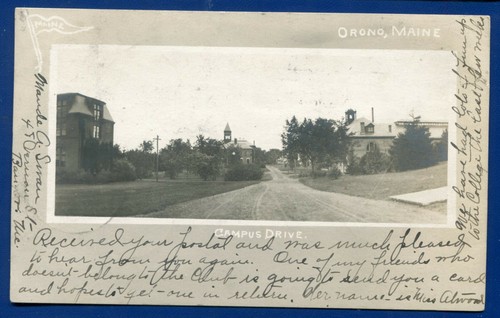 MAINE
ORONO, MAINE
CAMPUS DRIVE.
Maude A. Swan
48 Vernon St
Bangor Me.
We have had lots of fun up
to the College the last few weeks
Received your postal and was much pleased
to hear from you again. One of my friends who
doesn't belong to the Club is going to send you a card
and hopes to get one in return. Her name is Miss Atwood